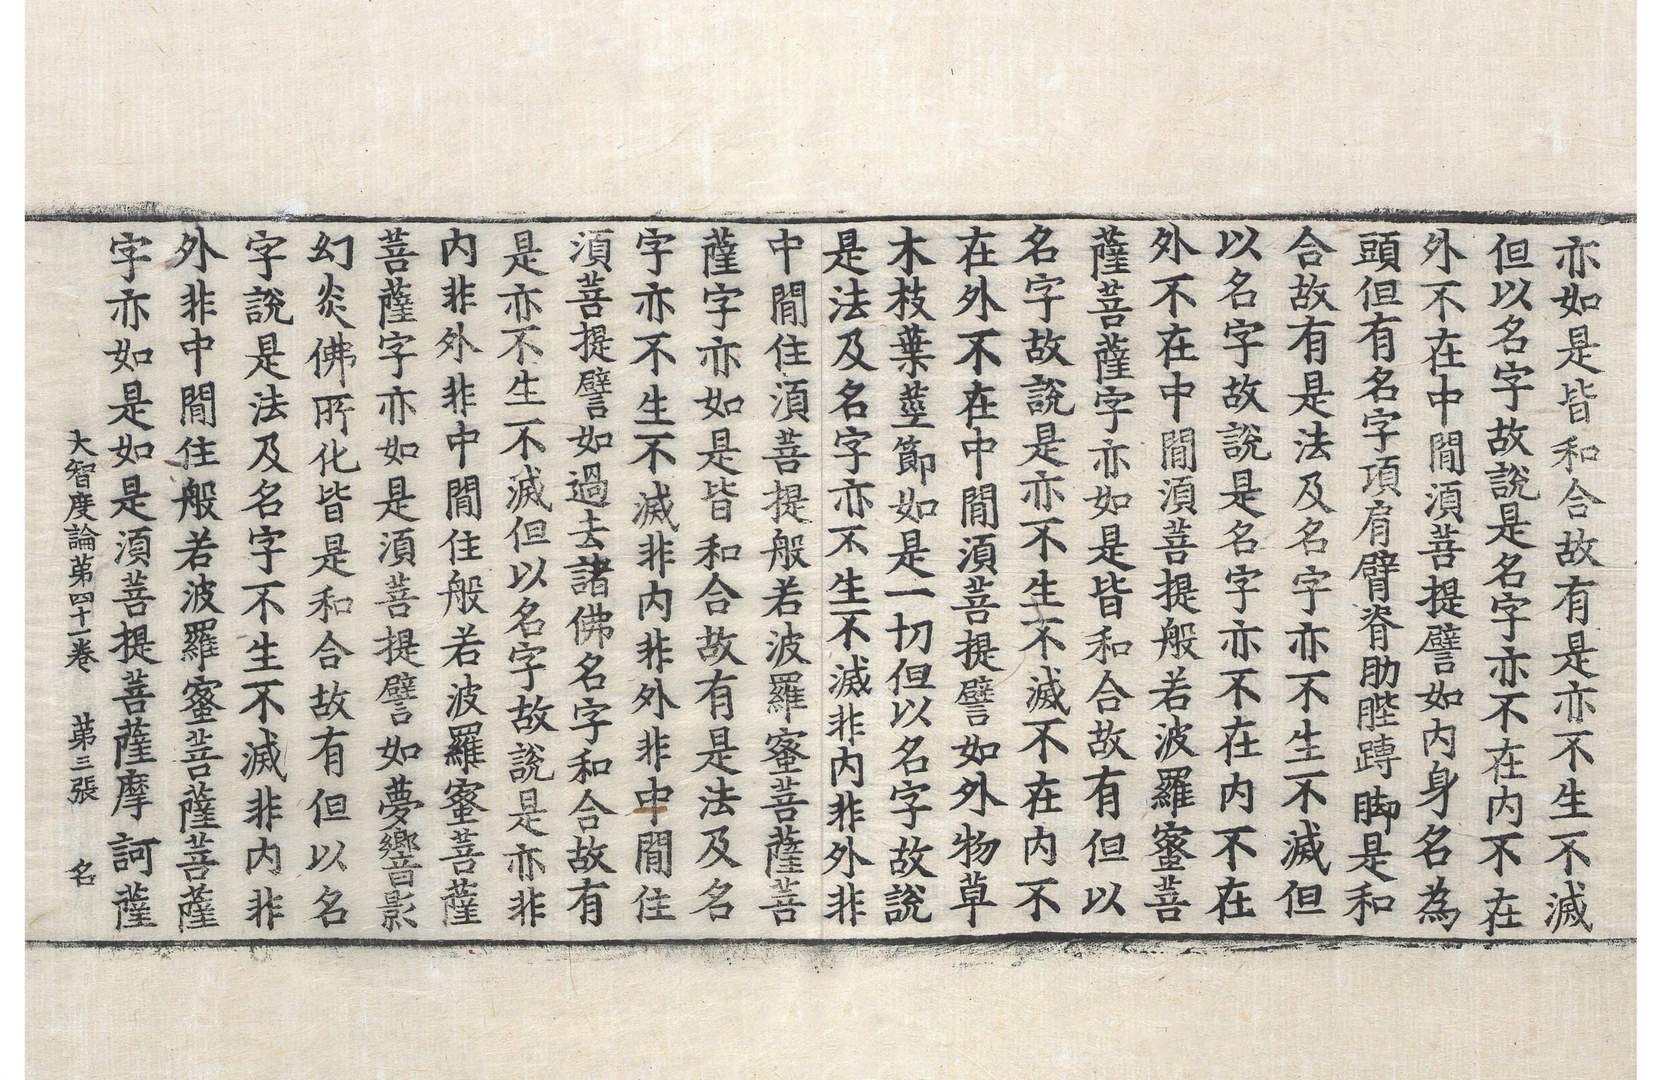 亦如是皆和合故有是亦不生不滅
但以名字故說是名字亦不在內不在
外不在中間湏菩提譬如內身名為
頭但有名字項肩臂脊肋髀蹲脚是和
合故有是法及名字亦不生不滅但
以名字故說是名字亦不在內不在
外不在中間湏菩提般若波羅蜜菩
薩菩薩字亦如是皆和合故有但以
名字故說是亦不生不滅不在內不
在外不在中間湏菩提譬如外物草
木枝葉莖節如是一切但以名字故說
是法及名字亦不生不滅非內非外非
中間住湏菩提般若波羅蜜菩薩菩
薩字亦如是皆和合故有是法及名
字亦不生不滅非內非外非中間住
湏菩提譬如過去諸佛名字和合故有
是亦不生不滅但以名字故說是亦非
內非外非中間住般若波羅蜜菩薩
菩薩字亦如是湏菩提譬如夢響影
幻炎佛所化皆是和合故有但以名
字說是法及名字不生不滅非內非
外非中間住般若波羅蜜菩薩菩薩
字亦如是如是湏菩提菩薩摩訶薩
大智度論第四十一卷 第三張 名